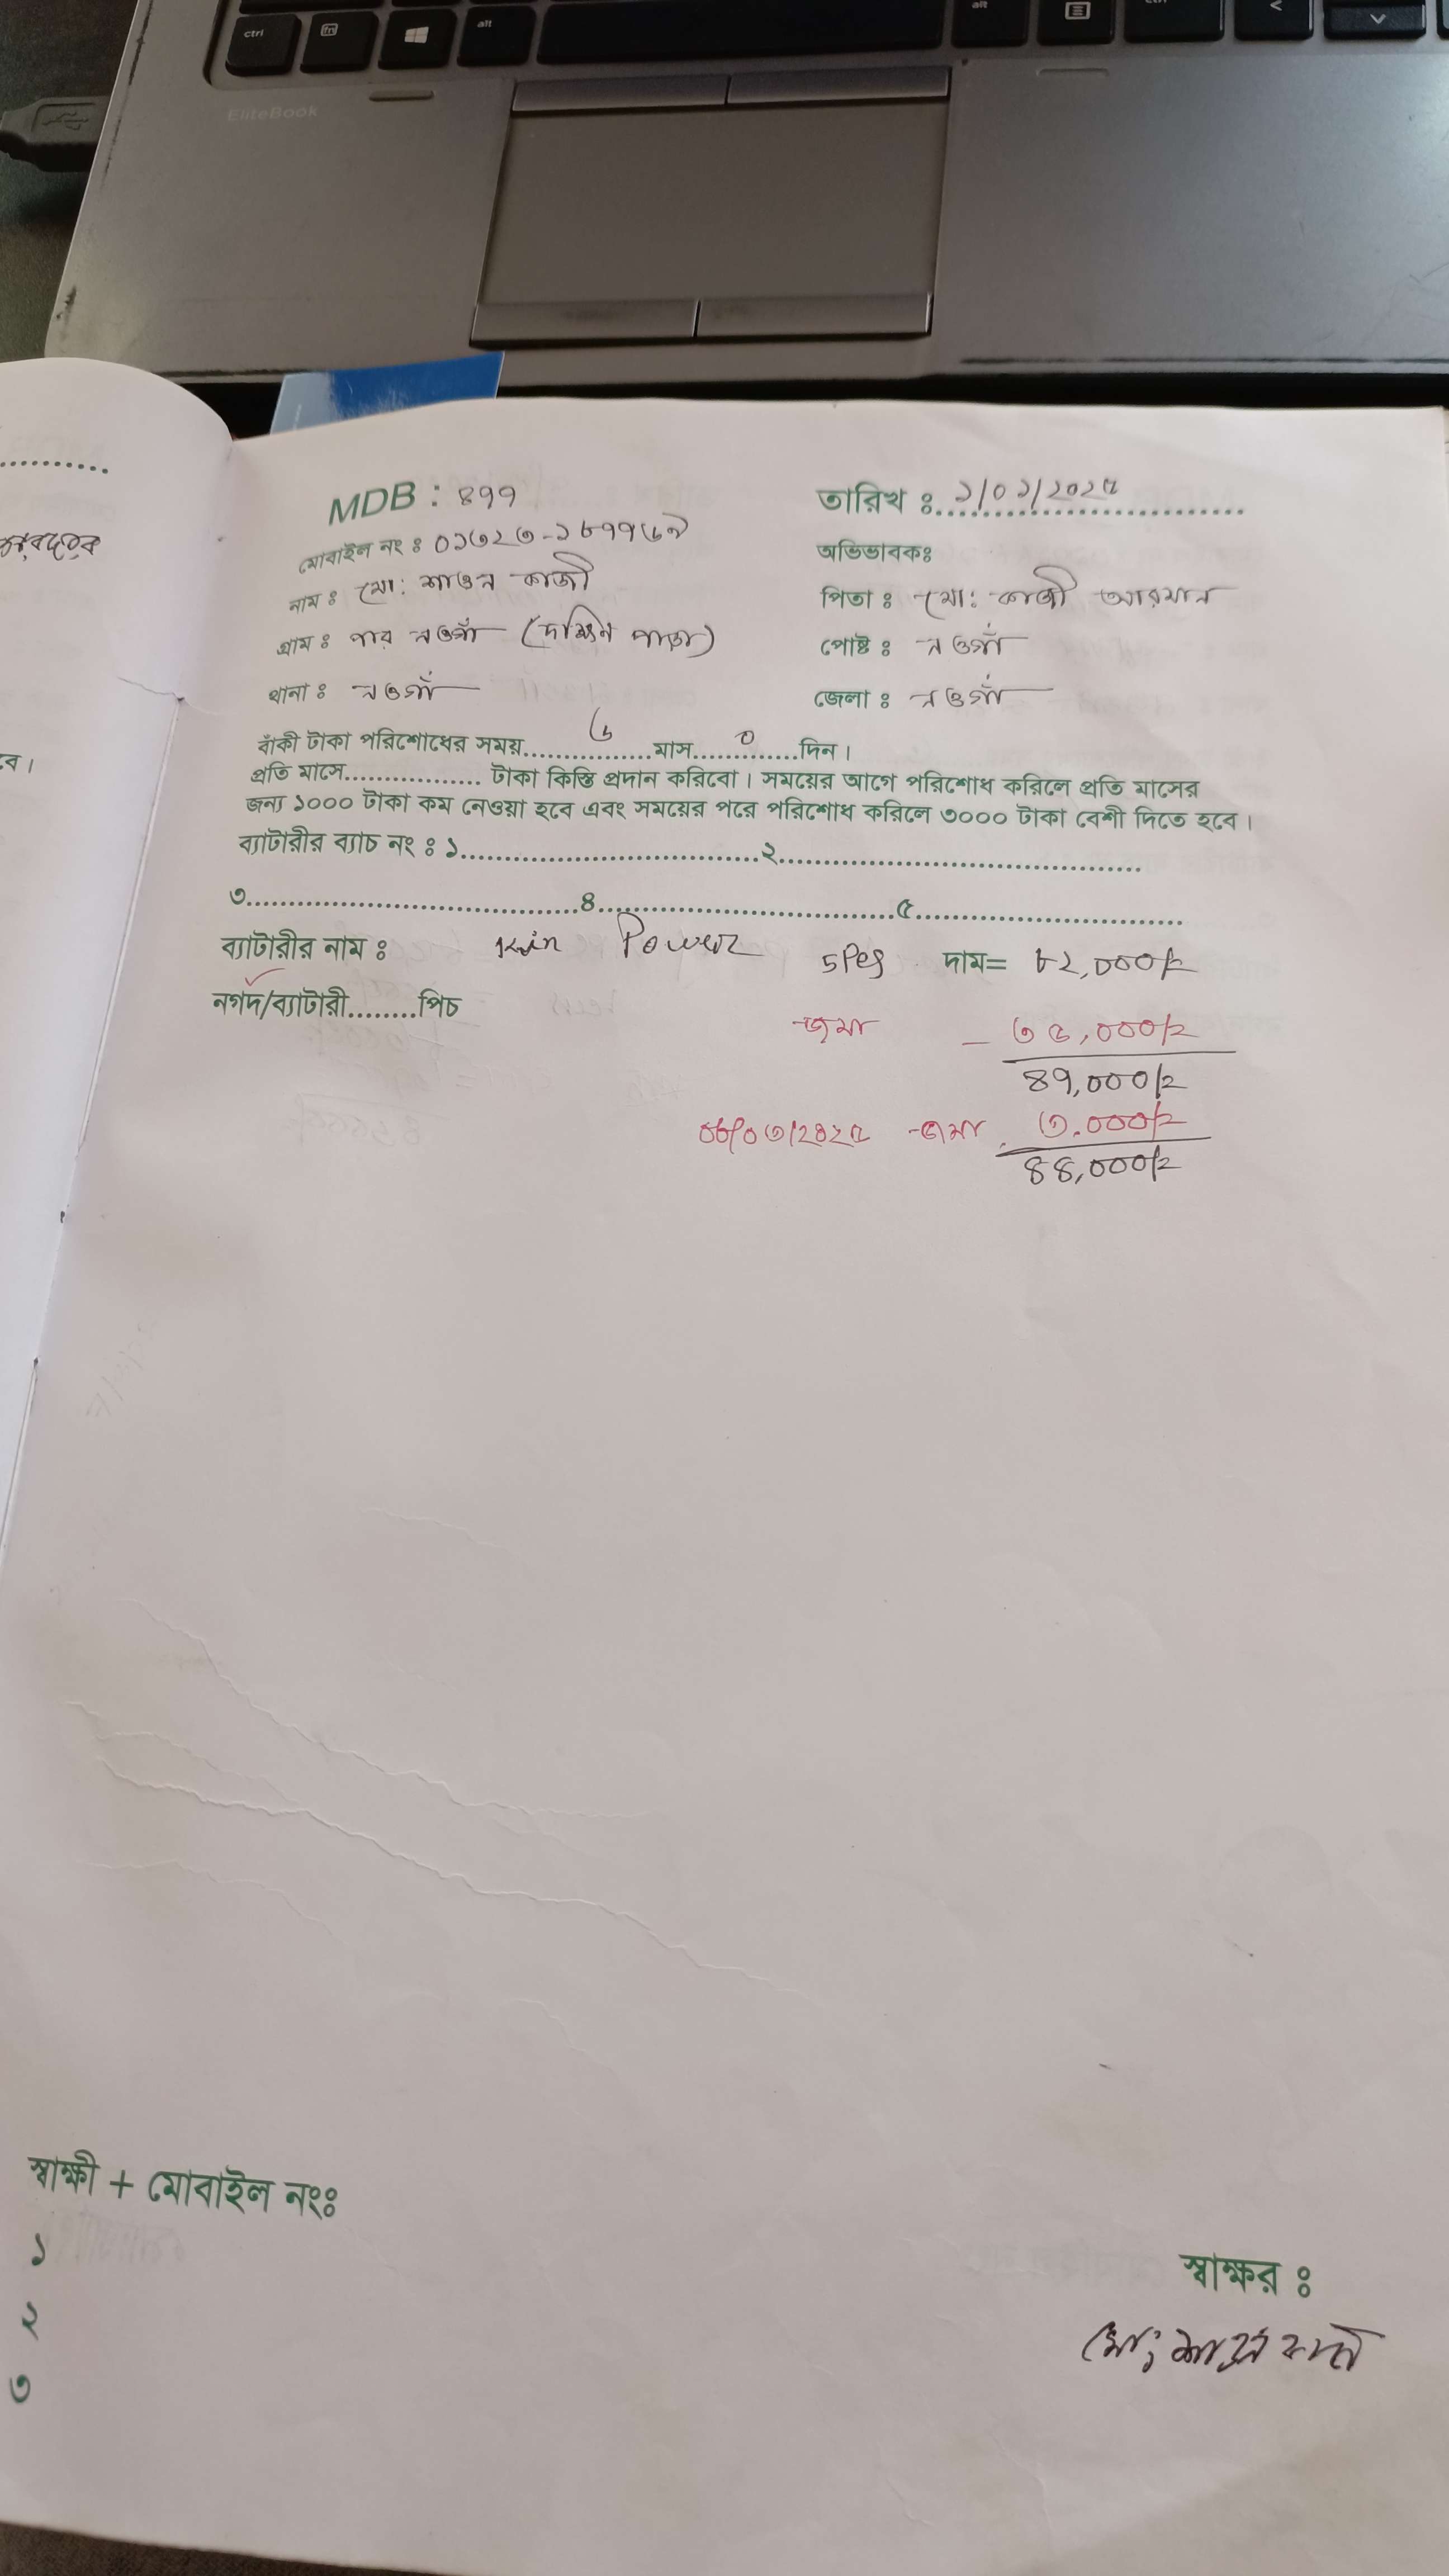 ctrl
fn
alt
alt
EliteBook
MDB : ৪৭৭
তারিখ ঃ ১/০২/২০২৫
মোবাইল নং ঃ
অভিভাবকঃ
নাম ঃ মো: শাওন কাজী
পিতা ঃ মো: কাজী আরমান
গ্রাম ঃ পার নওগাঁ (দক্ষিন পাড়া)
পোষ্ট ঃ নওগাঁ
থানা ঃ নওগাঁ
জেলা ঃ নওগাঁ
বাঁকী টাকা পরিশোধের সময়................৬ মাস.....০........দিন।
প্রতি মাসে................. টাকা কিস্তি প্রদান করিবো। সময়ের আগে পরিশোধ করিলে প্রতি মাসের
জন্য ১০০০ টাকা কম নেওয়া হবে এবং সময়ের পরে পরিশোধ করিলে ৩০০০ টাকা বেশী দিতে হবে।
ব্যাটারীর ব্যাচ নং ঃ ১......................................২..............................................
৩..........................................৪......................................৫..................................
ব্যাটারীর নাম ঃ Power 5Pes দাম= ৮২,০০০/=
নগদ/ব্যাটারী........পিচ
জমা - ৩৫,০০০/=
৪৭,০০০/=
জমা ৩.০০০/=
৪৪,০০০/=
স্বাক্ষী + মোবাইল নংঃ
১
২
৩
স্বাক্ষর ঃ